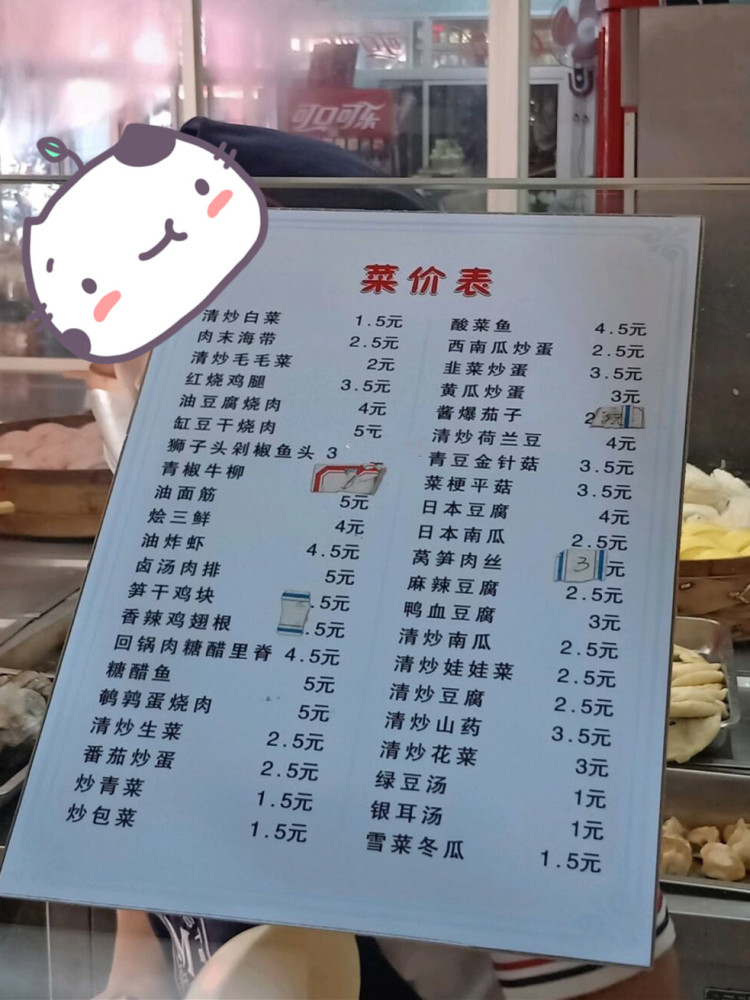 可口可乐
菜价表
清炒白菜 1.5元
肉末海带 2.5元
清炒毛毛菜 2元
红烧鸡腿 3.5元
油豆腐烧肉 4元
缸豆干烧肉 5元
狮子头剁椒鱼头 3
青椒牛柳
油面筋 5元
烩三鲜 4元
油炸虾 4.5元
卤汤肉排 5元
笋干鸡块 .5元
香辣鸡翅根 .5元
回锅肉糖醋里脊 4.5元
糖醋鱼 5元
鹌鹑蛋烧肉 5元
清炒生菜 2.5元
番茄炒蛋 2.5元
炒青菜 1.5元
炒包菜 1.5元
酸菜鱼 4.5元
西南瓜炒蛋 2.5元
韭菜炒蛋 3.5元
黄瓜炒蛋 3元
酱爆茄子 2
清炒荷兰豆 4元
青豆金针菇 3.5元
菜梗平菇 3.5元
日本豆腐 4元
日本南瓜 2.5元
莴笋肉丝 3元
麻辣豆腐 2.5元
鸭血豆腐 3元
清炒南瓜 2.5元
清炒娃娃菜 2.5元
清炒豆腐 2.5元
清炒山药 3.5元
清炒花菜 3元
绿豆汤 1元
银耳汤 1元
雪菜冬瓜 1.5元